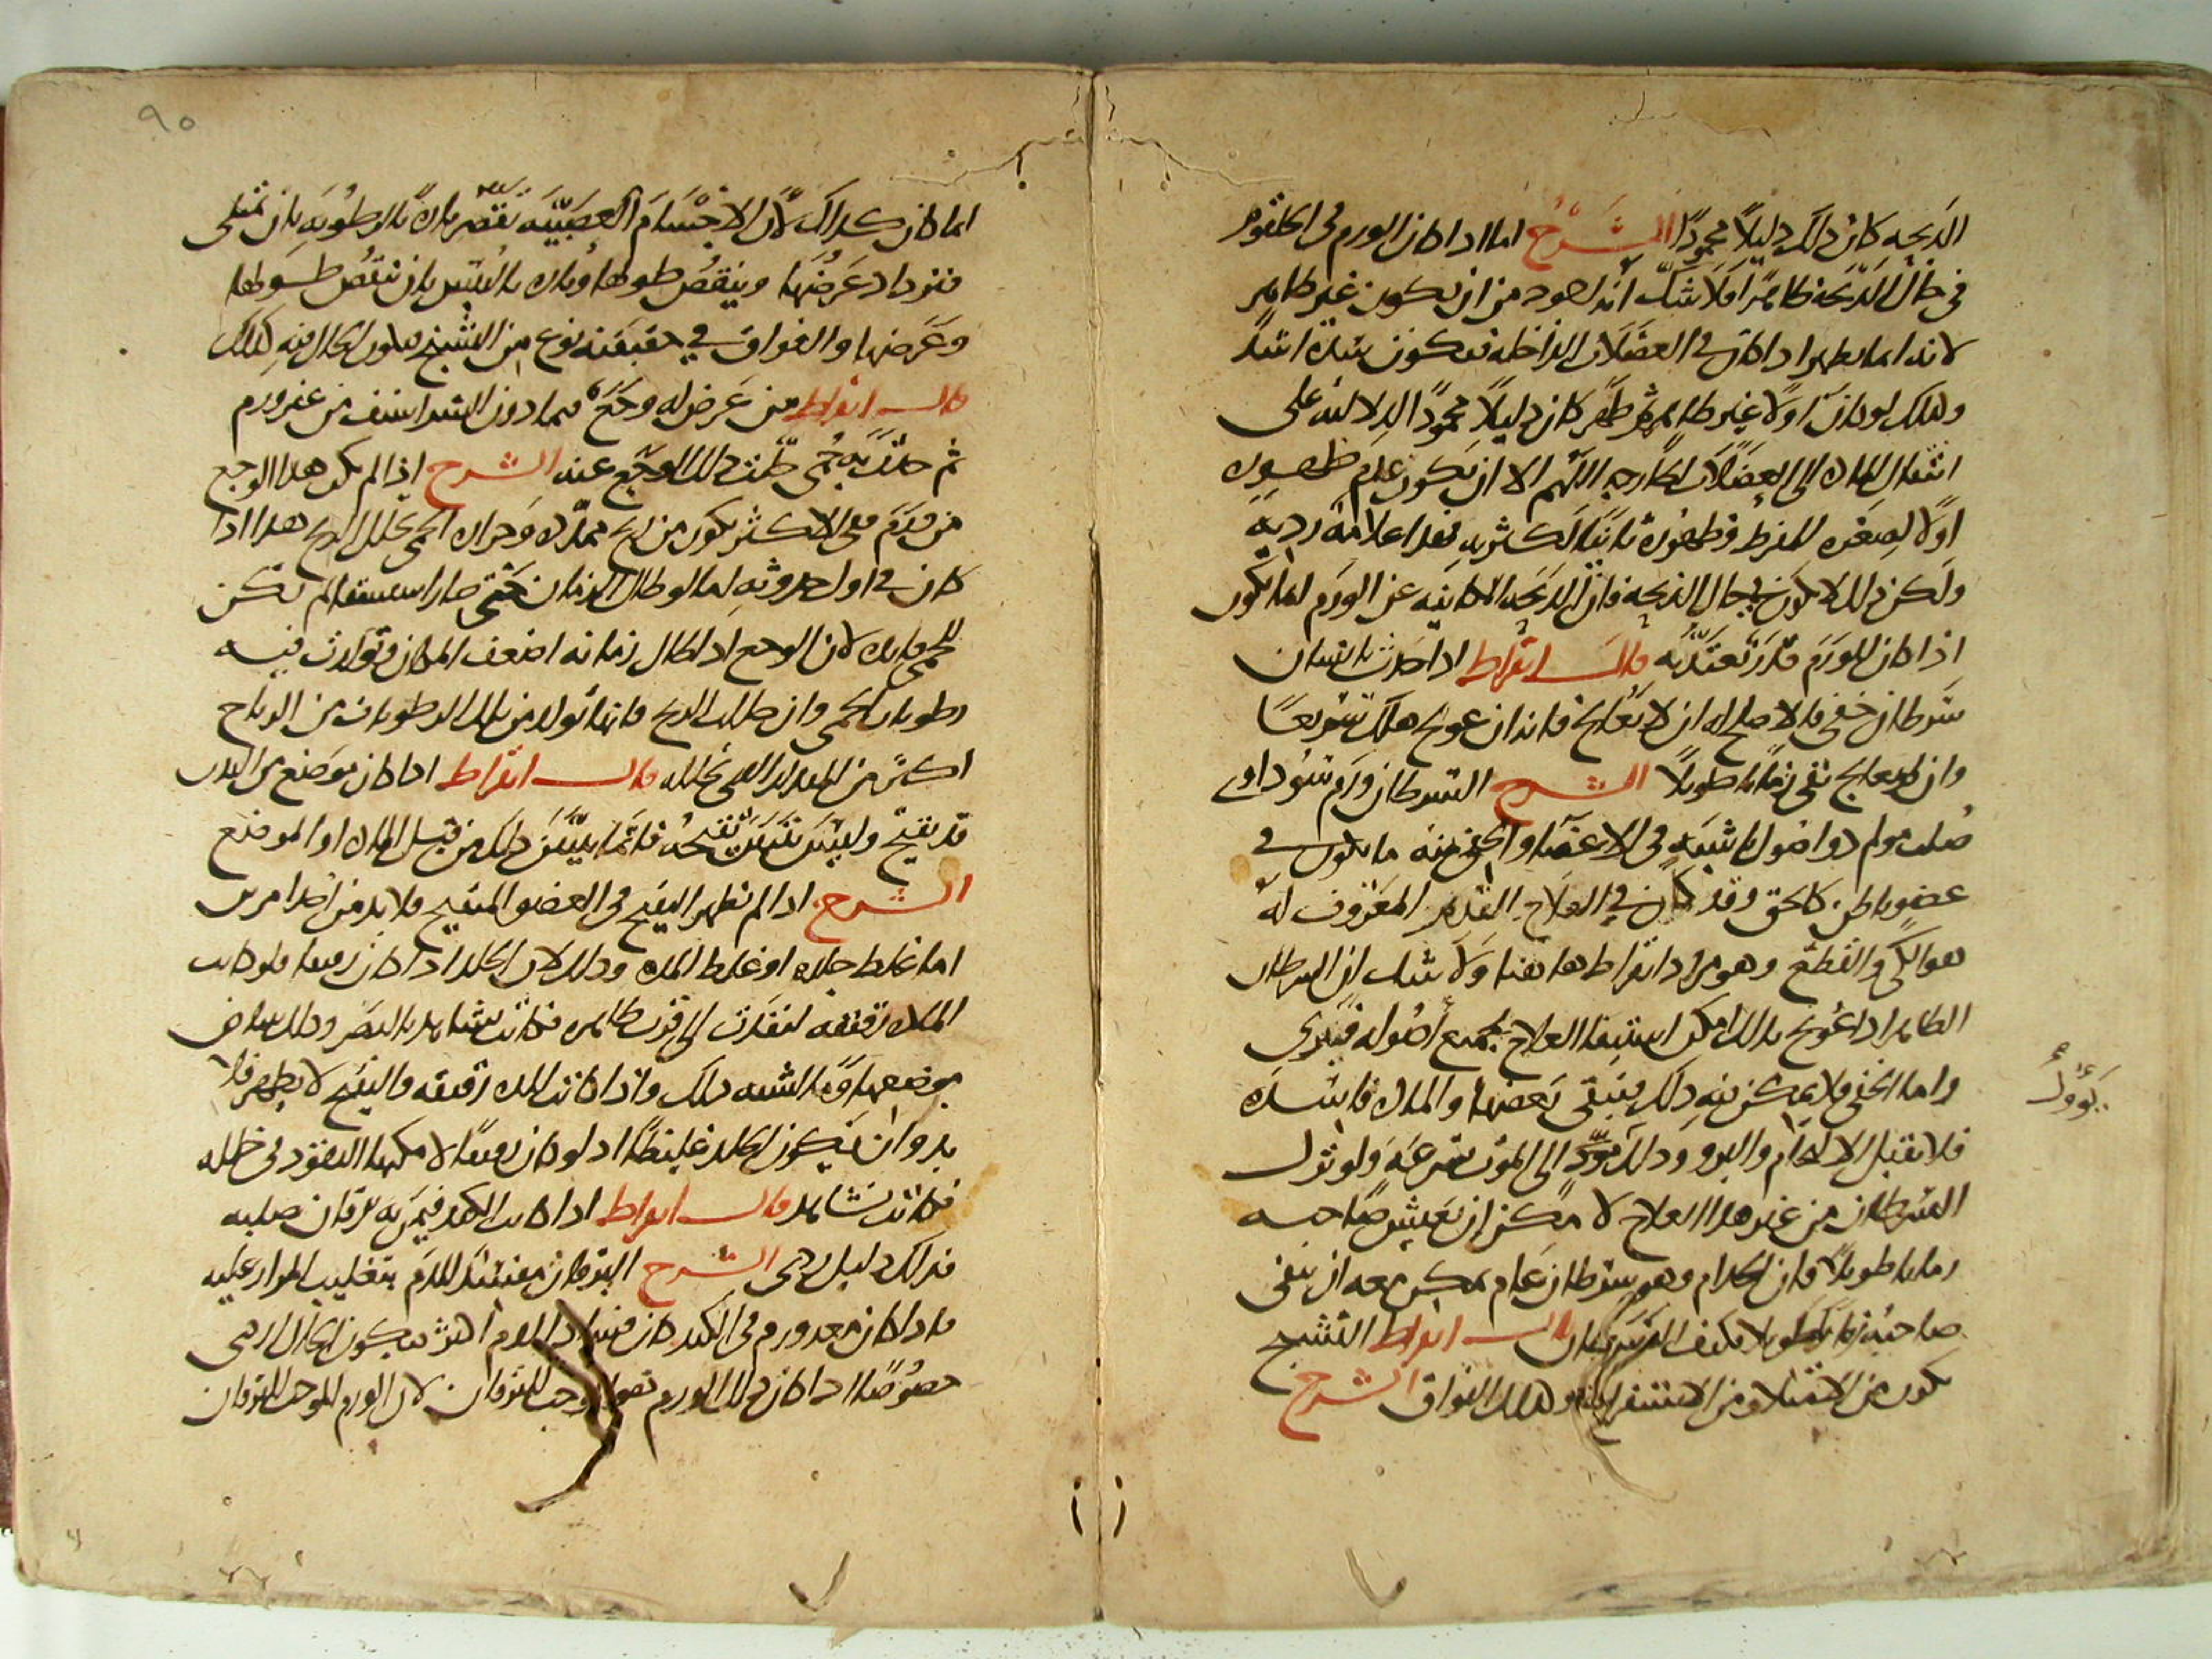 الذبحة كان ذلك دليلا محمودا الشرح اما اذا كان الورم في الحلقوم
في حال الذبحة ظاهرا فلا شك انه اجود من ان يكون غير ظاهر
لانه انما يظهر اذا كان في العضلات الداخلة فيكون شدة اشد
وكذلك لو كان اولا غير ظاهر ثم ظهر كان دليلا محمودا لدلالته على
انتقال المادة الى العضلات الخارجة اللهم الا ان يكون عدم ظهوره
اولا لصغره المفرط وظهوره ثانيا لكثرته فهذا علامة ردية
ولكن ذلك لا يكون في حال الذبحة فان الذبحة الكاينة عن الورم انما تكون
اذا كان للورم قدر يعتد به قال ابقراط اذا حدث بانسان
سرطان خفي فالاصلح له ان لا يعالج فانه ان عولج هلك سريعا
وان لم يعالج بقي زمانا طويلا الشرح السرطان ورم سوداوي
صلب مولم ذو اصول ناشبة في الاعضا والخفي منه ما يكون في
عضو باطن كالحق وقد كان في العلاج القديم المعروف له
هو الكي والقطع وهو مراد ابقراط هاهنا ولا شك ان السرطان
الظاهر اذا عولج بذلك امكن استيفا العلاج بجميع اصوله فيبرى
واما الخفي فلا يمكن فيه ذلك فيبقى بعضها والمادة فاسدة
يؤول
فلا تقبل الالتحام والبرو وذلك مؤد الى الموت سرعة ولو ترك
السرطان من غير هذا العلاج لا مكن ان يعيش صاحبه
زمانا طويلا فان الجذام وهو سرطان عام يمكن معه ان يبقى
صاحبه زمانا طويلا فكيف السرطان قال ابقراط التشنج
يكون من الامتلا ومن الاستفراغ وكذلك الفواق الشرح
٩٠
انما كان كذلك لان الاجسام العصبية تقصر تارة بالرطوبة بان تمتلى
فتزداد عرضها وينقص طولها وتارة باليبس بان تنقص طولها
وعرضها والفواق في حقيقته نوع من التشنج فيكون الحال فيه كذلك
قال ابقراط من عرض له وجع فيما دون الشراسيف من غير ورم
ثم حدث به حمى حلت ذلك الوجع عنه الشرح اذا لم يكن هذا الوجع
من ورم فهو في الاكثر يكون من ريح ممددة وحرارة الحمى تحلل الريح هذا اذا
كان في اول حدوثه اما لو طال الزمان حتى صار استسقا لم تكن
للحمى فايدة لان الوجع اذا طال زمانه اضعف المكان وتولدت فيه
رطوبات الحمى وان حللت الريح فانها تولد من تلك الرطوبات من الرياح
اكثر من المقدار الذي تحلله قال ابقراط اذا كان موضع من البدن
قد تقيح وليس يتبين تقيحه فانما يتبين ذلك من قبل المادة او الموضع
الشرح اذا لم يظهر القيح في العضو المتقيح فلا بد من احد امرين
اما غلظ جلده او غلظ المدة وذلك لان الجلد اذا كان رقيقا فلو كانت
المدة رقيقة لنفذت الى قرب ظاهره فكانت تشاهد بالبصر وذلك ببياض
موضعها وما اشبه ذلك واذا كانت المدة رقيقة والقيح لا يظهر فلا
بد وان يكون الجلد غليظا اذ لو كان رقيقا لامكنها النفوذ في خلله
فكانت تشاهد قال ابقراط اذا كانت الكبد فيمن به يرقان صلبة
فذلك دليل ردى الشرح اليرقان مفسد للدم بتغليب المرار عليه
فاذا كان معه ورم في الكبد كان فساد الدم اكثر فيكون الحال اردى
خصوصا اذا كان ذلك الورم هو الموجب لليرقان لان الورم الموجب لليرقان